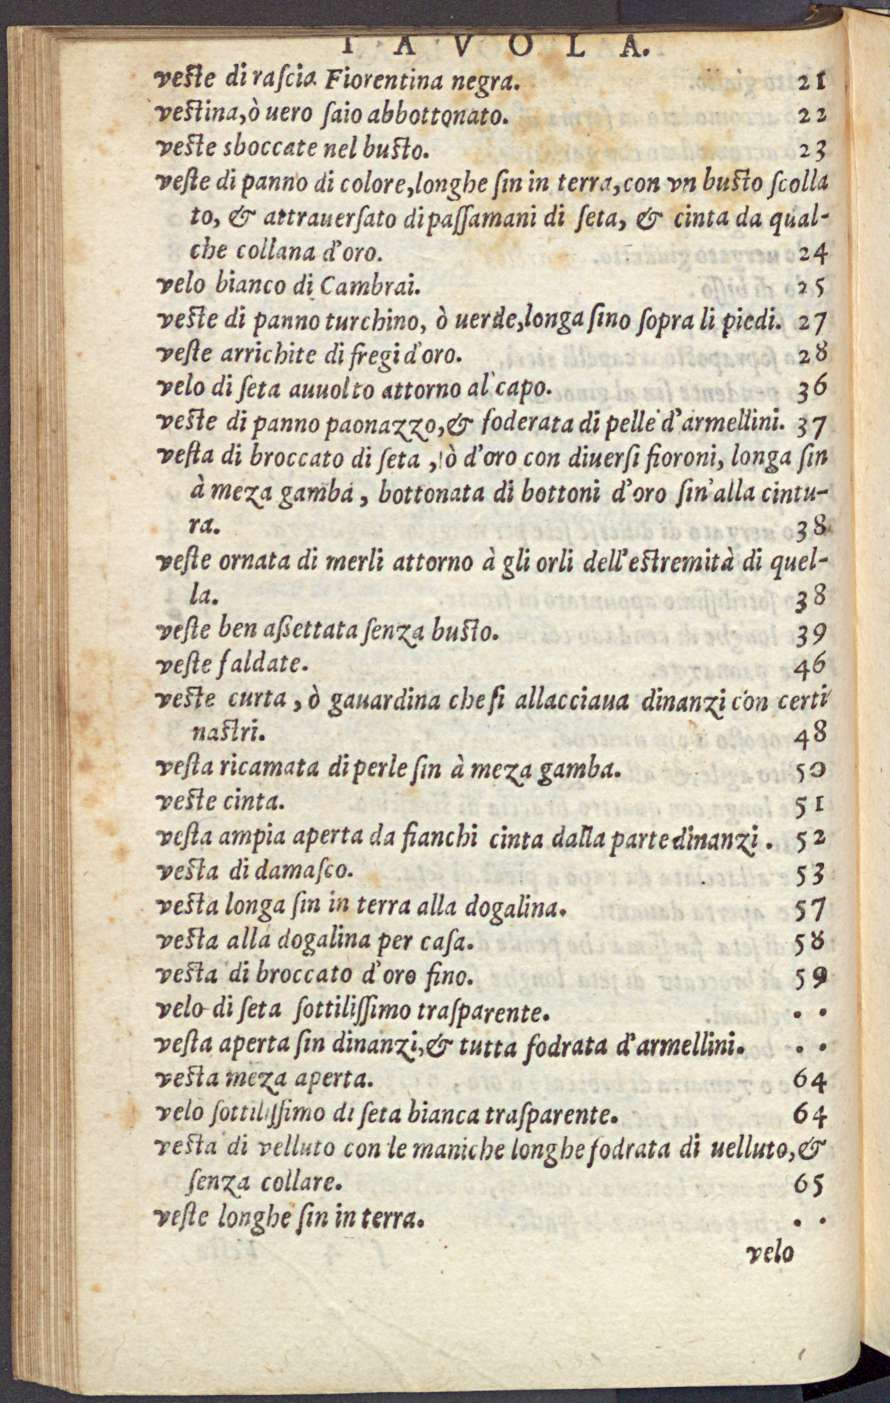 TAVOLA.
veste di raſcia Fiorentina negra. 21
vestina, ò uero ſaio abbottonato. 22
veste sboccate nel busto. 23
veste di panno di colore, longhe ſin in terra, con vn busto ſcolla
to, & attrauerſato di paſſamani di ſeta, & cinta da qual-
che collana d'oro. 24
velo bianco di Cambrai. 25
veste di panno turchino, ò uerde, longa ſino ſopra li piedi. 27
veste arrichite di fregi d'oro. 28
velo di ſeta auuolto attorno al capo. 36
veste di panno paonazzo, & foderata di pelle d'armellini. 37
vesta di broccato di ſeta, ò d'oro con diuerſi fioroni, longa ſin
à meza gamba, bottonata di bottoni d'oro ſin'alla cintu-
ra. 38
veste ornata di merli attorno à gli orli dell'estremità di quel-
la. 38
veste ben aßettata ſenza busto. 39
veste faldate. 46
veste curta, ò gauardina che ſi allacciaua dinanzi con certi
nastri. 48
vesta ricamata di perle ſin à meza gamba. 50
veste cinta. 51
vesta ampia aperta da fianchi cinta dalla parte dinanzi. 52
vesta di damaſco. 53
vesta longa ſin in terra alla dogalina. 57
vesta alla dogalina per caſa. 58
vesta di broccato d'oro fino. 59
velo di ſeta ſottiliſſimo traſparente. . .
vesta aperta ſin dinanzi, & tutta fodrata d'armellini. . .
vesta meza aperta. 64
velo ſottiliſſimo di ſeta bianca traſparente. 64
vesta di velluto con le maniche longhe fodrata di uelluto, &
ſenza collare. 65
veste longhe ſin in terra. . .
velo